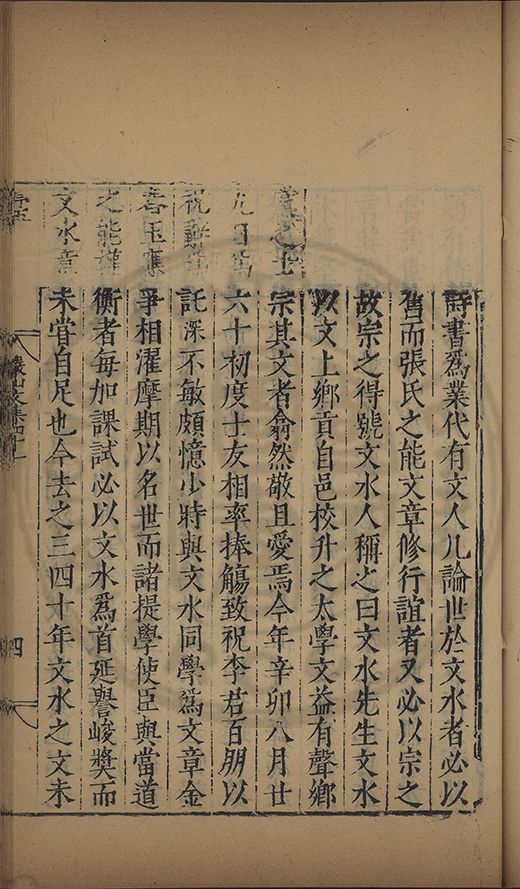 詩書爲業代有文人凢論世於文水者必以
舊而張氏之能文章修行誼者又必以宗之
故宗之得號文水人稱之曰文水先生文水
以文上鄉貢自邑校升之太學文益有聲鄉
黨之士宗其文者翕然敬且愛焉今年辛卯八月廿
九日爲六十初度士友相率捧觴致祝李君百朋以
祝辭爲託深不敏頗憶少時與文水同學爲文章金
舂玉應爭相濯摩期以名世而諸提學使臣與當道
之能衡者每加課試必以文水爲首延譽峻獎而
文水意未嘗自足也今去之三四十年文水之文未
壽序
四